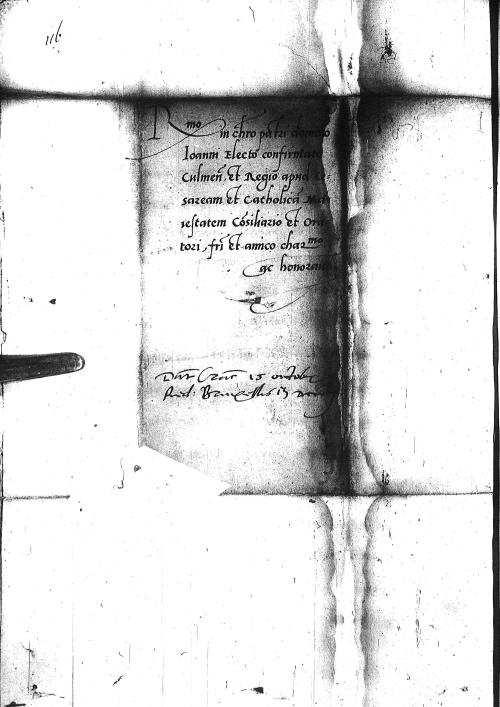 116
Rmo in chro patri domino
Ioanni Electo confirmato
Culmeñ. et Regio apud
saream et Catholicã
iestatem Cõsiliario et Ora
tori, fri et amico charmo
ac honoran
Dat Crac 15 octobr
Red: Bruxellis